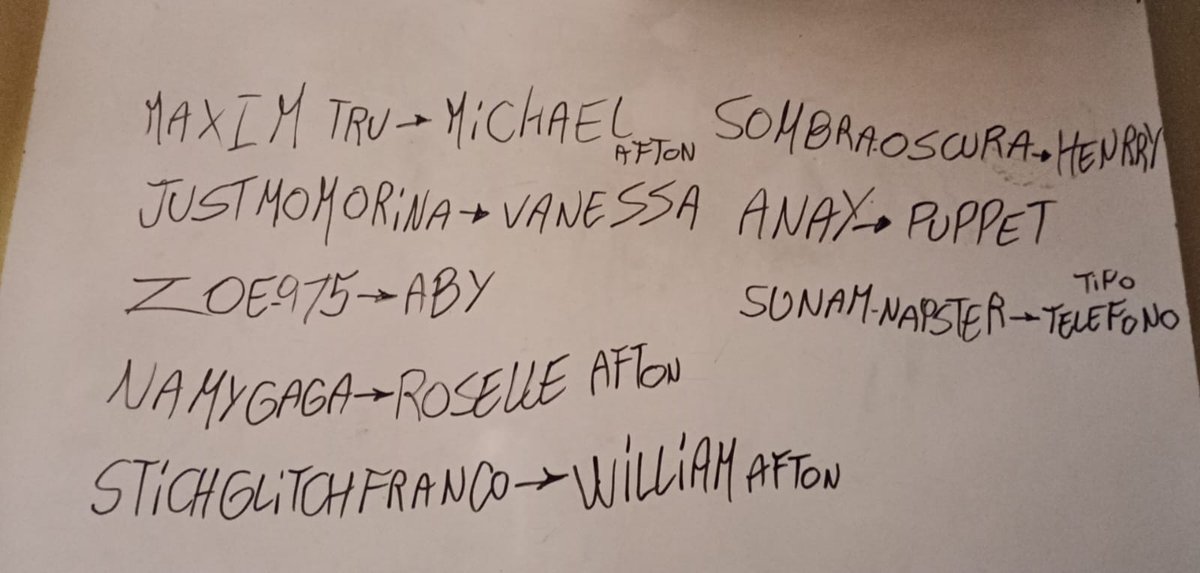 MAXIM TRU → MiCHAEL AFTON
JUSTMOMORiNA → VANESSA
ZOE-975 → ABY
NAMYGAGA → ROSELLE AFTON
STiCHGLiTCHFRANCO → WiLLiAM AFTON
SOMBRA.OSCURA → HENRRY
ANAY → PUPPET
SUNAM-NAPSTER → TiPO TELEFONO